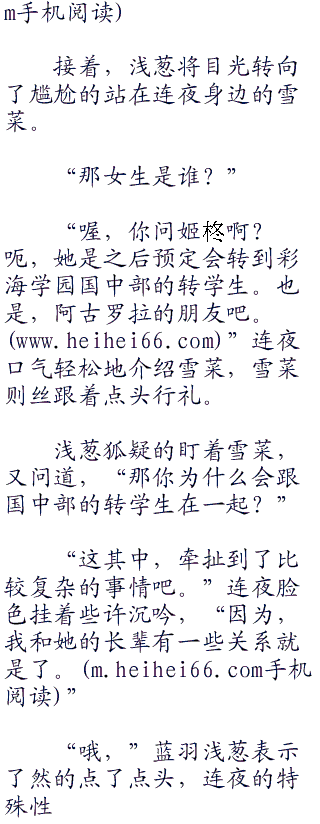 m手机阅读)
接着，浅葱将目光转向
了尴尬的站在连夜身边的雪
菜。
“那女生是谁？”
“喔，你问姬柊啊？
呃，她是之后预定会转到彩
海学园国中部的转学生。也
是，阿古罗拉的朋友吧。
(www.heihei66.com)”连夜
口气轻松地介绍雪菜，雪菜
则丝跟着点头行礼。
浅葱狐疑的盯着雪菜，
又问道，“那你为什么会跟
国中部的转学生在一起？”
“这其中，牵扯到了比
较复杂的事情吧。”连夜脸
色挂着些许沉吟，“因为，
我和她的长辈有一些关系就
是了。(m.heihei66.com手机
阅读)”
“哦，”蓝羽浅葱表示
了然的点了点头，连夜的特
殊性